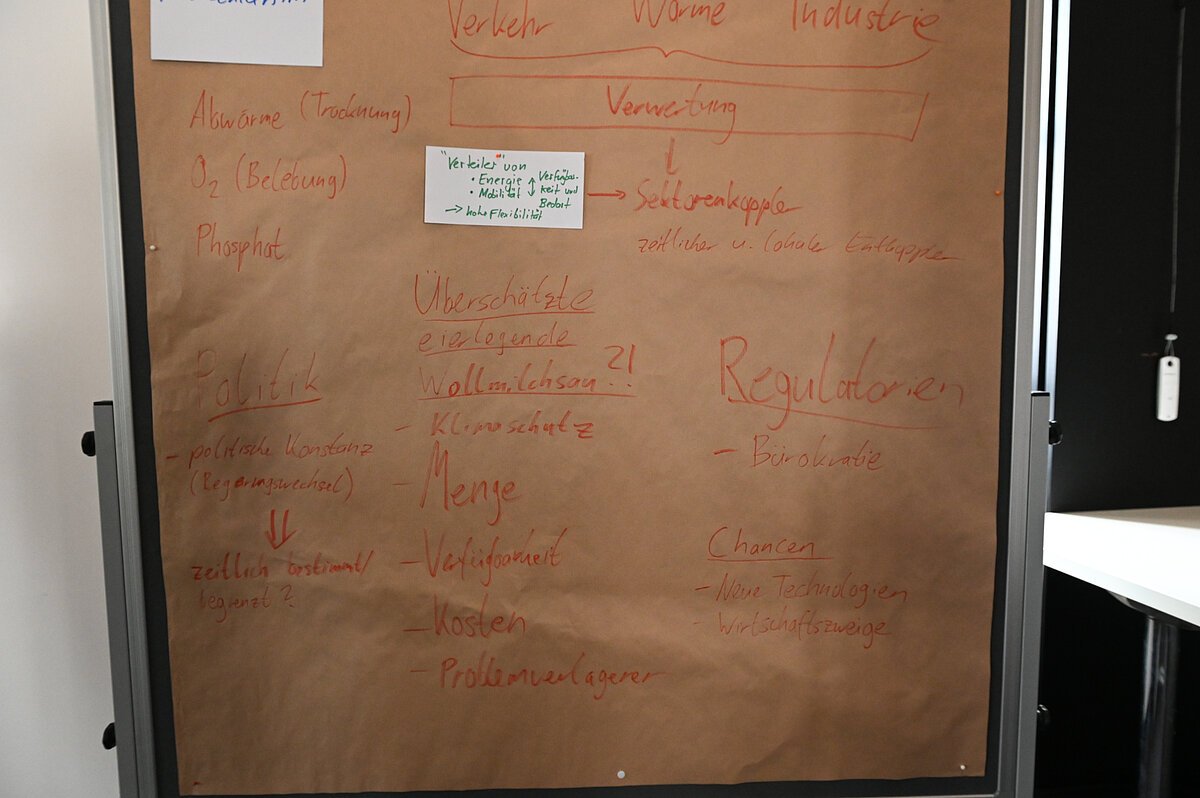 Verkehr Wärme Industrie
Verwertung
Abwärme (Trocknung)
O₂ (Belebung)
Phosphat
"Verteiler" von
• Energie
• Mobilität
Verfügbar-
keit und
Bedarf
→ hohe Flexibilität
→ Sektorenkoppler
zeitlicher u. lokaler Entkoppler
Politik
- politische Konstanz
(Regierungswechsel)
zeitlich bestimmt/
begrenzt?
Überschätzte
eierlegende
Wollmilchsau?!
- Klimaschutz
- Menge
- Verfügbarkeit
- Kosten
- Problemverlagerer
Regulatorien
- Bürokratie
Chancen
- Neue Technologien
- Wirtschaftszweige